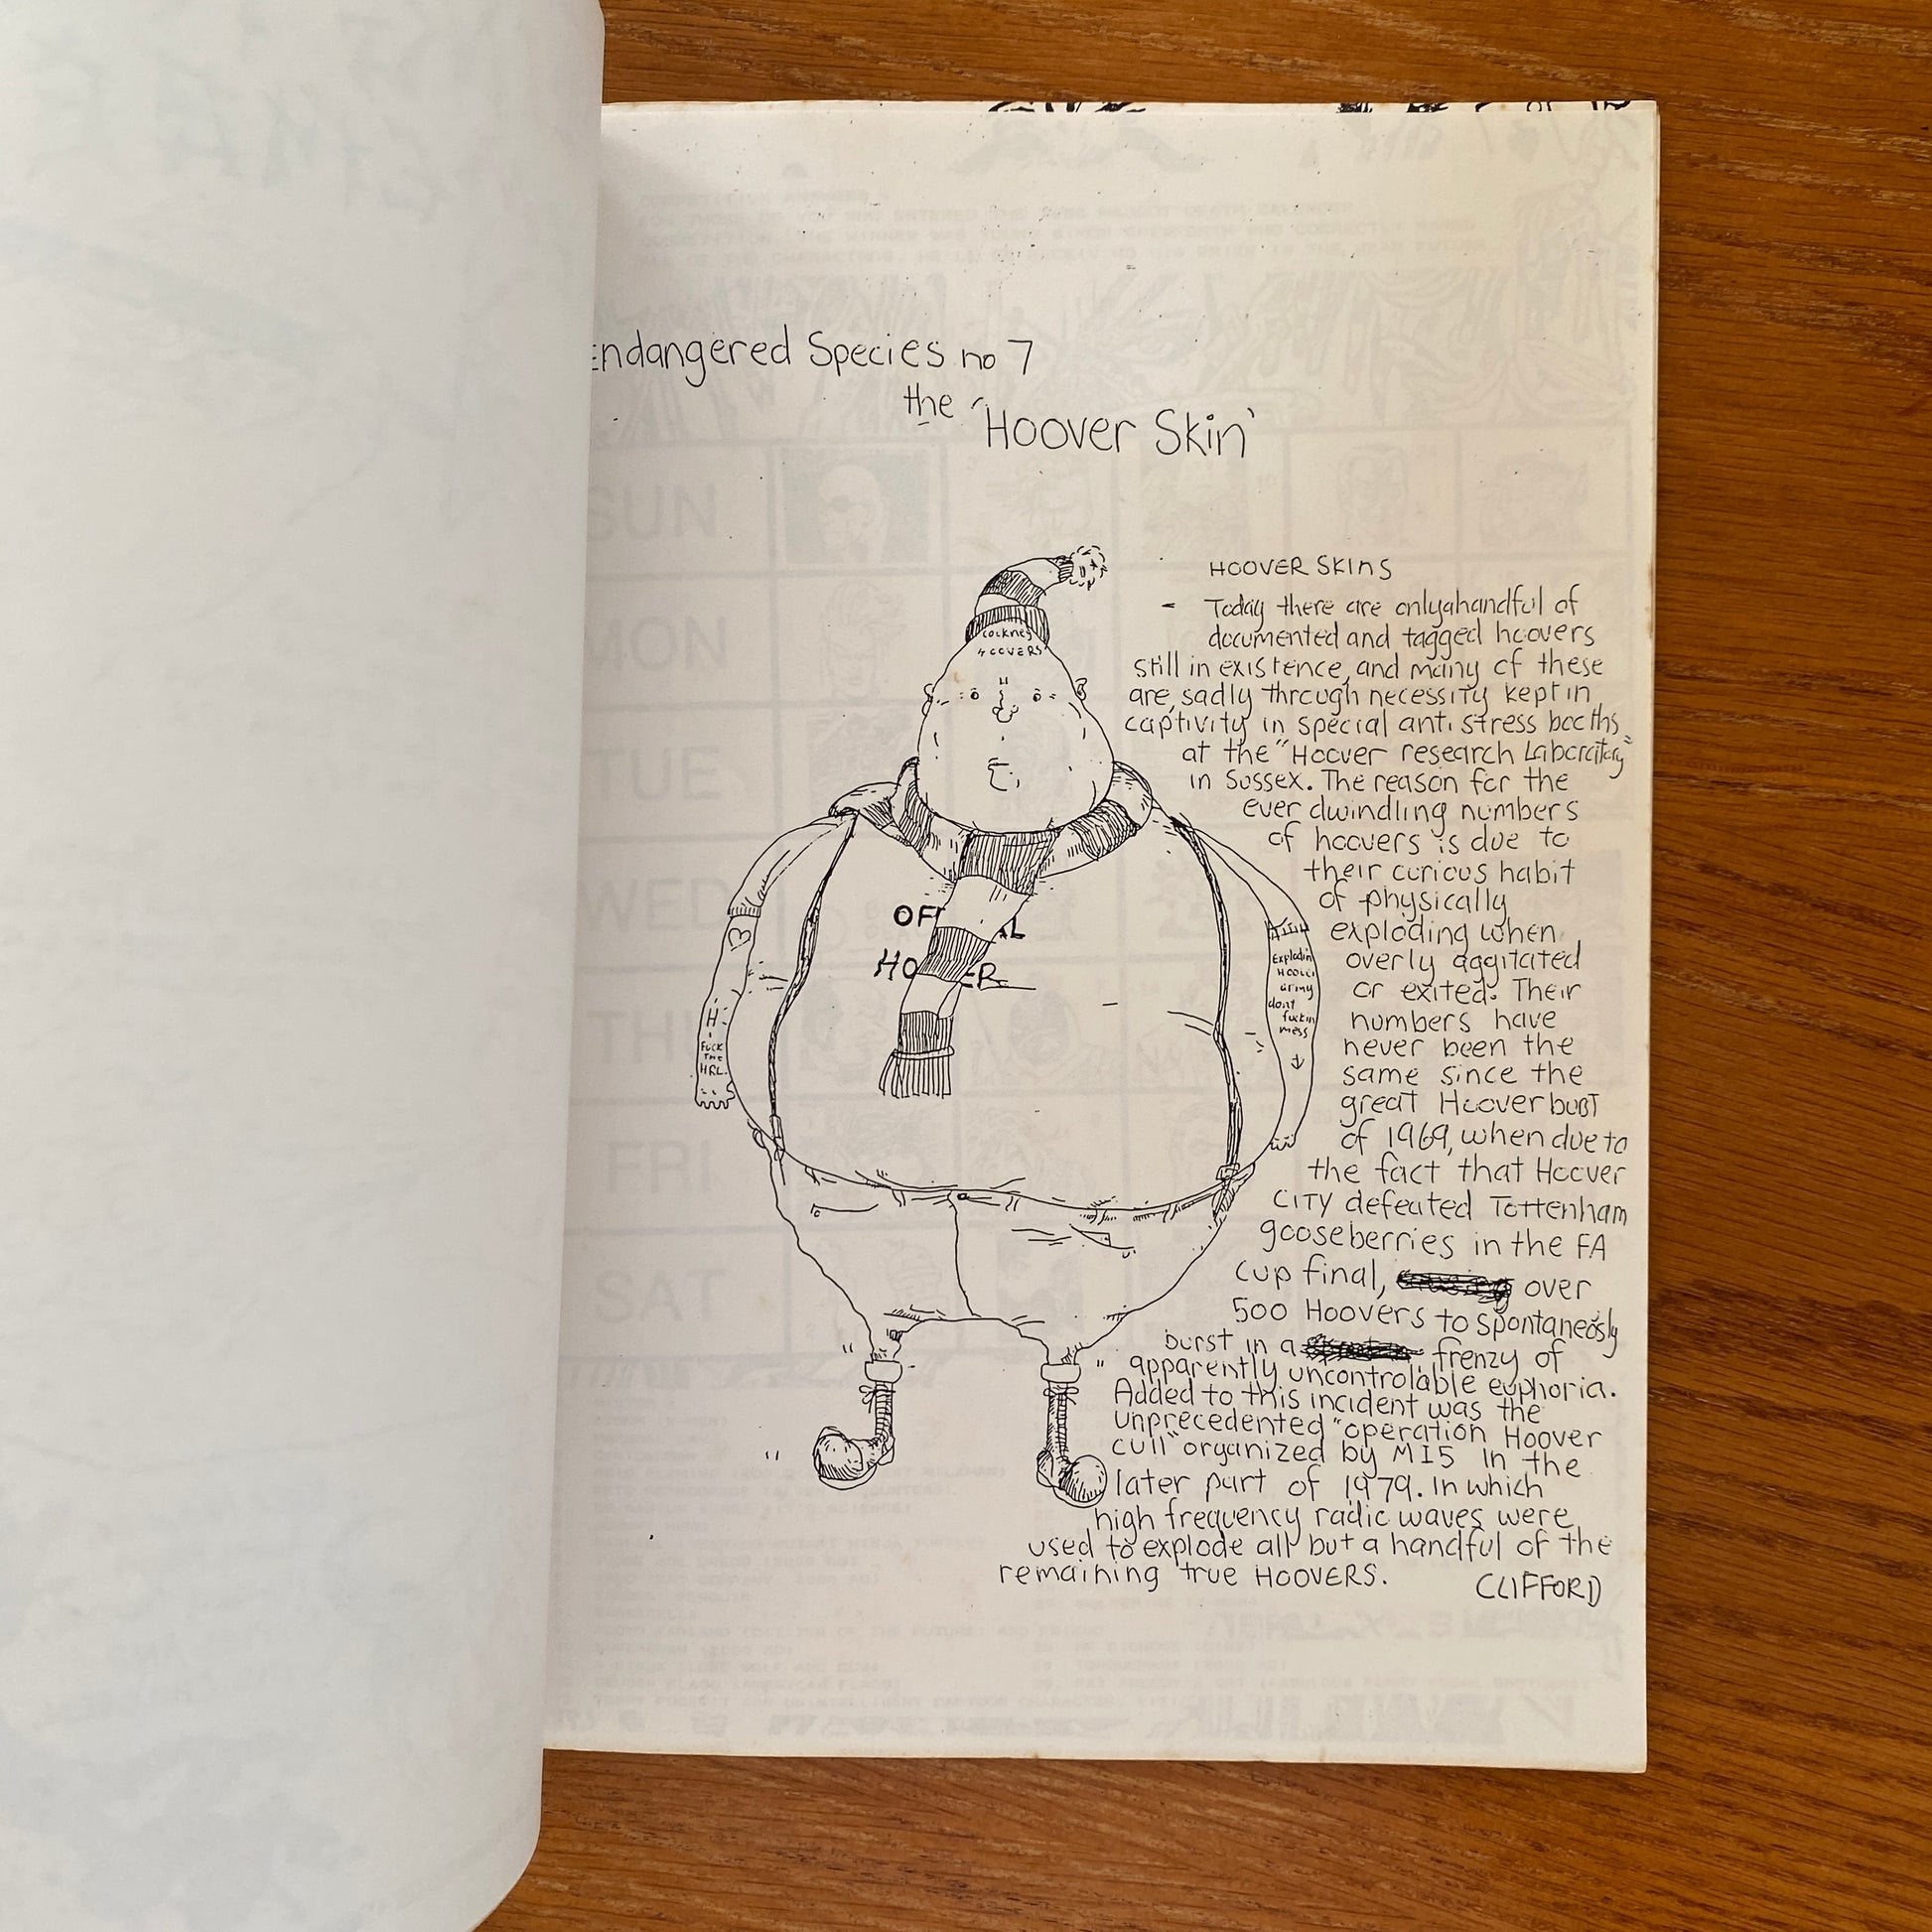 Endangered Species no 7
the 'Hoover Skin'
cockney
HOOVERS
OF AL
HO ER
H
FUCK
THE
HRL.
Explodin
army
dont
fuckin
mess
HOOVER SKINS
- Today there are onlyahandful of
documented and tagged hoovers
still in existence, and many of these
are, sadly through necessity kept in
captivity in special anti stress booths
at the "Hoover research Laboratory"
in Sussex. The reason for the
ever dwindling numbers
of hoovers is due to
their curious habit
of physically
exploding when
overly aggitated
or exited. Their
numbers have
never been the
same since the
great Hoover bust
of 1969, when due to
the fact that Hoover
CITY defeated Tottenham
gooseberries in the FA
cup final, over
500 Hoovers to spontaneosly
burst in a frenzy of
apparently uncontrolable euphoria.
Added to this incident was the
unprecedented "operation Hoover
cull" organized by MI5 in the
later part of 1979. In which
high frequency radio waves were
used to explode all but a handful of the
remaining true HOOVERS.
CLIFFORD
SUN
MON
TUE
WED
THU
FRI
SAT